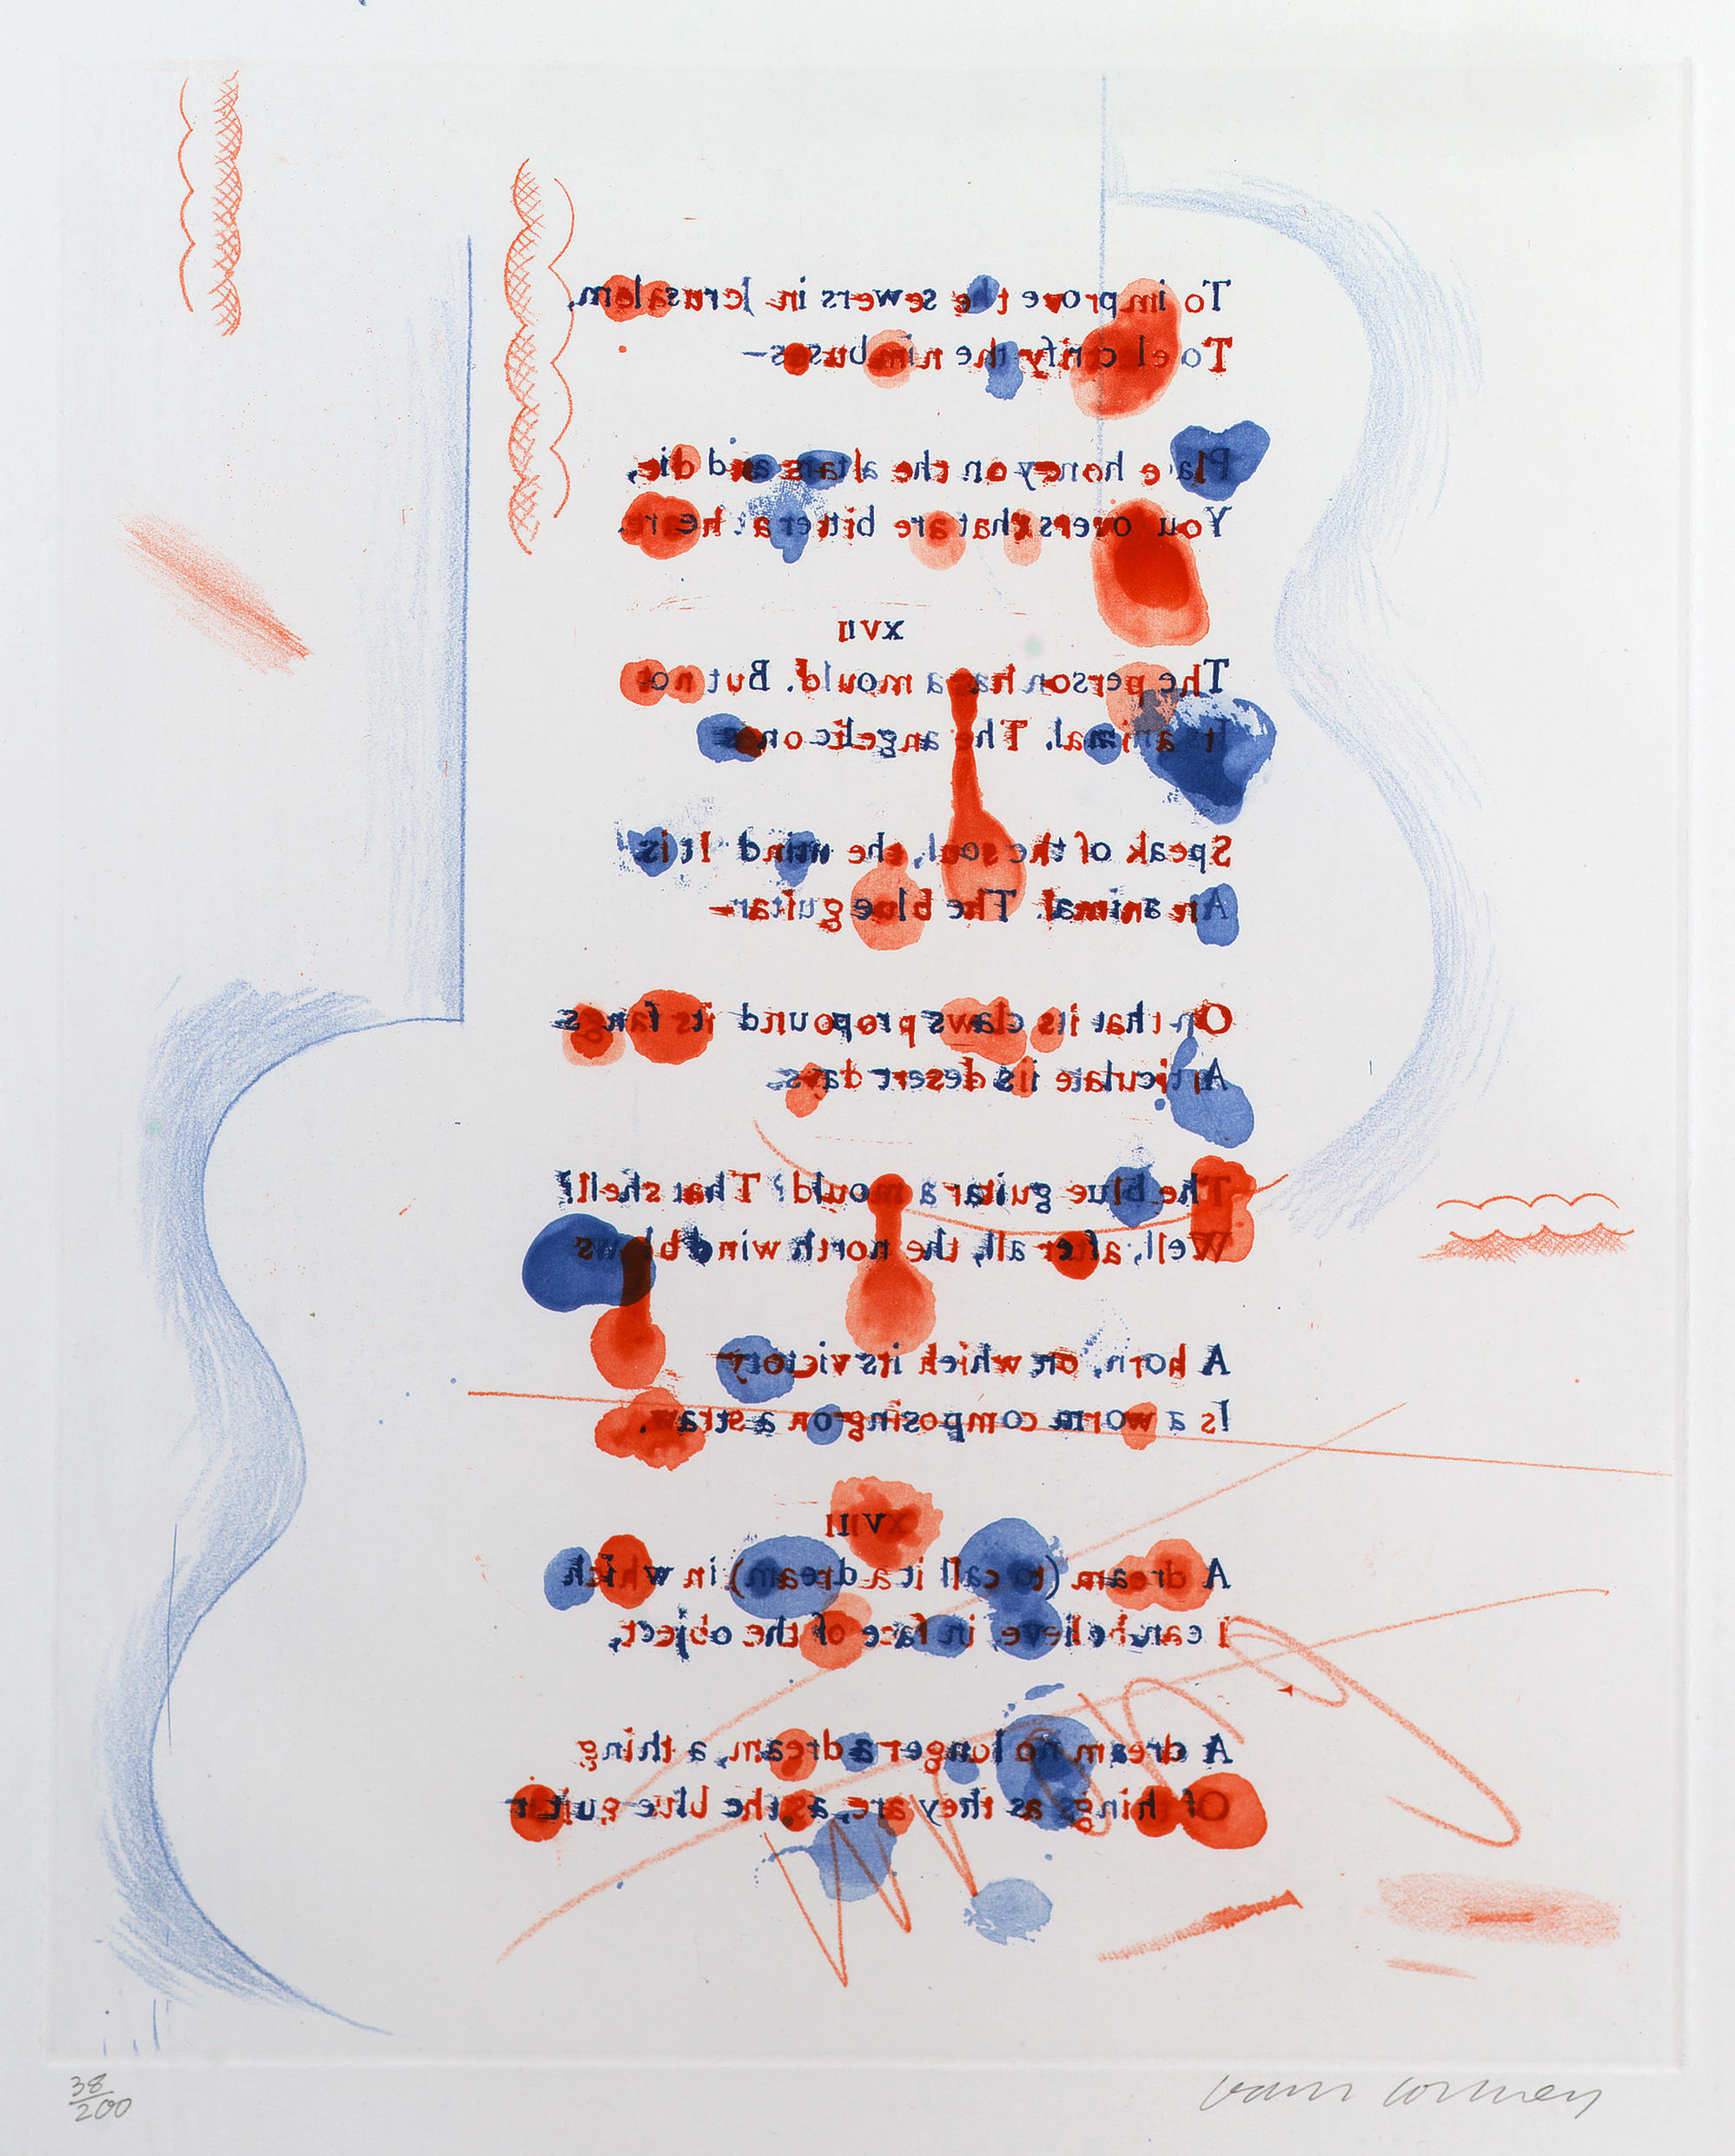 To improve the sewers in Jerusalem,
To electrify the nimbuses—
Place honey on the altars and die,
You lovers that are bitter at heart.
XVII
The person has a mould. But not
Its animal. The angelic ones
Speak of the soul, the mind. It is
An animal. The blue guitar—
On that its claws propound its fangs
Articulate its desert days.
The blue guitar a mould? That shell?
Well, after all, the north wind blows
A horn, on which its victory
Is a worm composing on a straw.
XVIII
A dream (to call it a dream) in which
I can believe, in face of the object,
A dream no longer a dream, a thing
Of things as they are, as the blue guitar
38/200